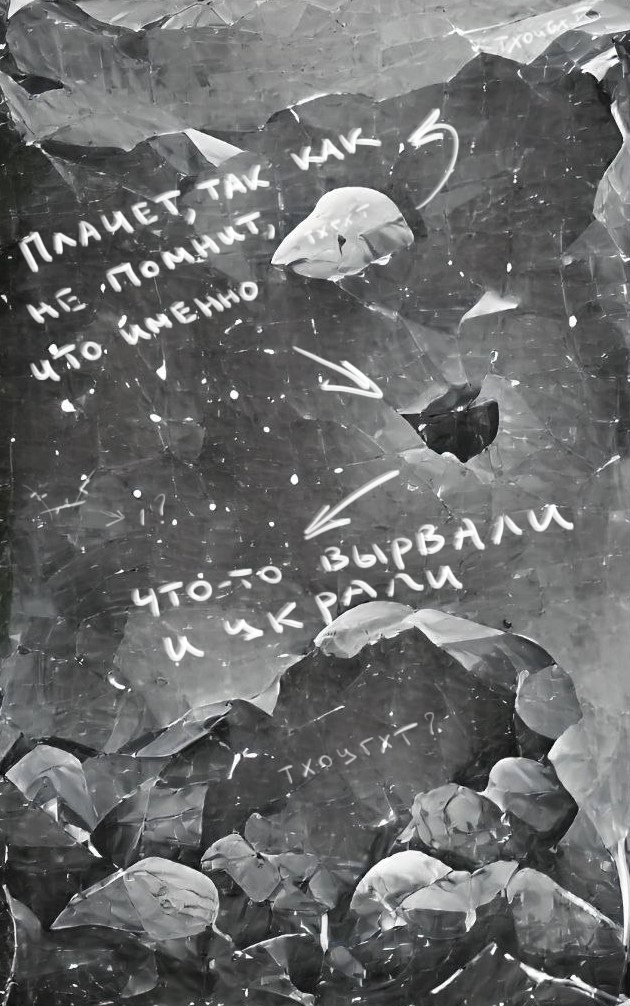 тхоугхт
ПЛАЧЕТ, ТАК КАК
НЕ ПОМНИТ,
ЧТО ИМЕННО
! ?
ЧТО-ТО ВЫРВАЛИ
И УКРАЛИ
ТХОУГХТ?